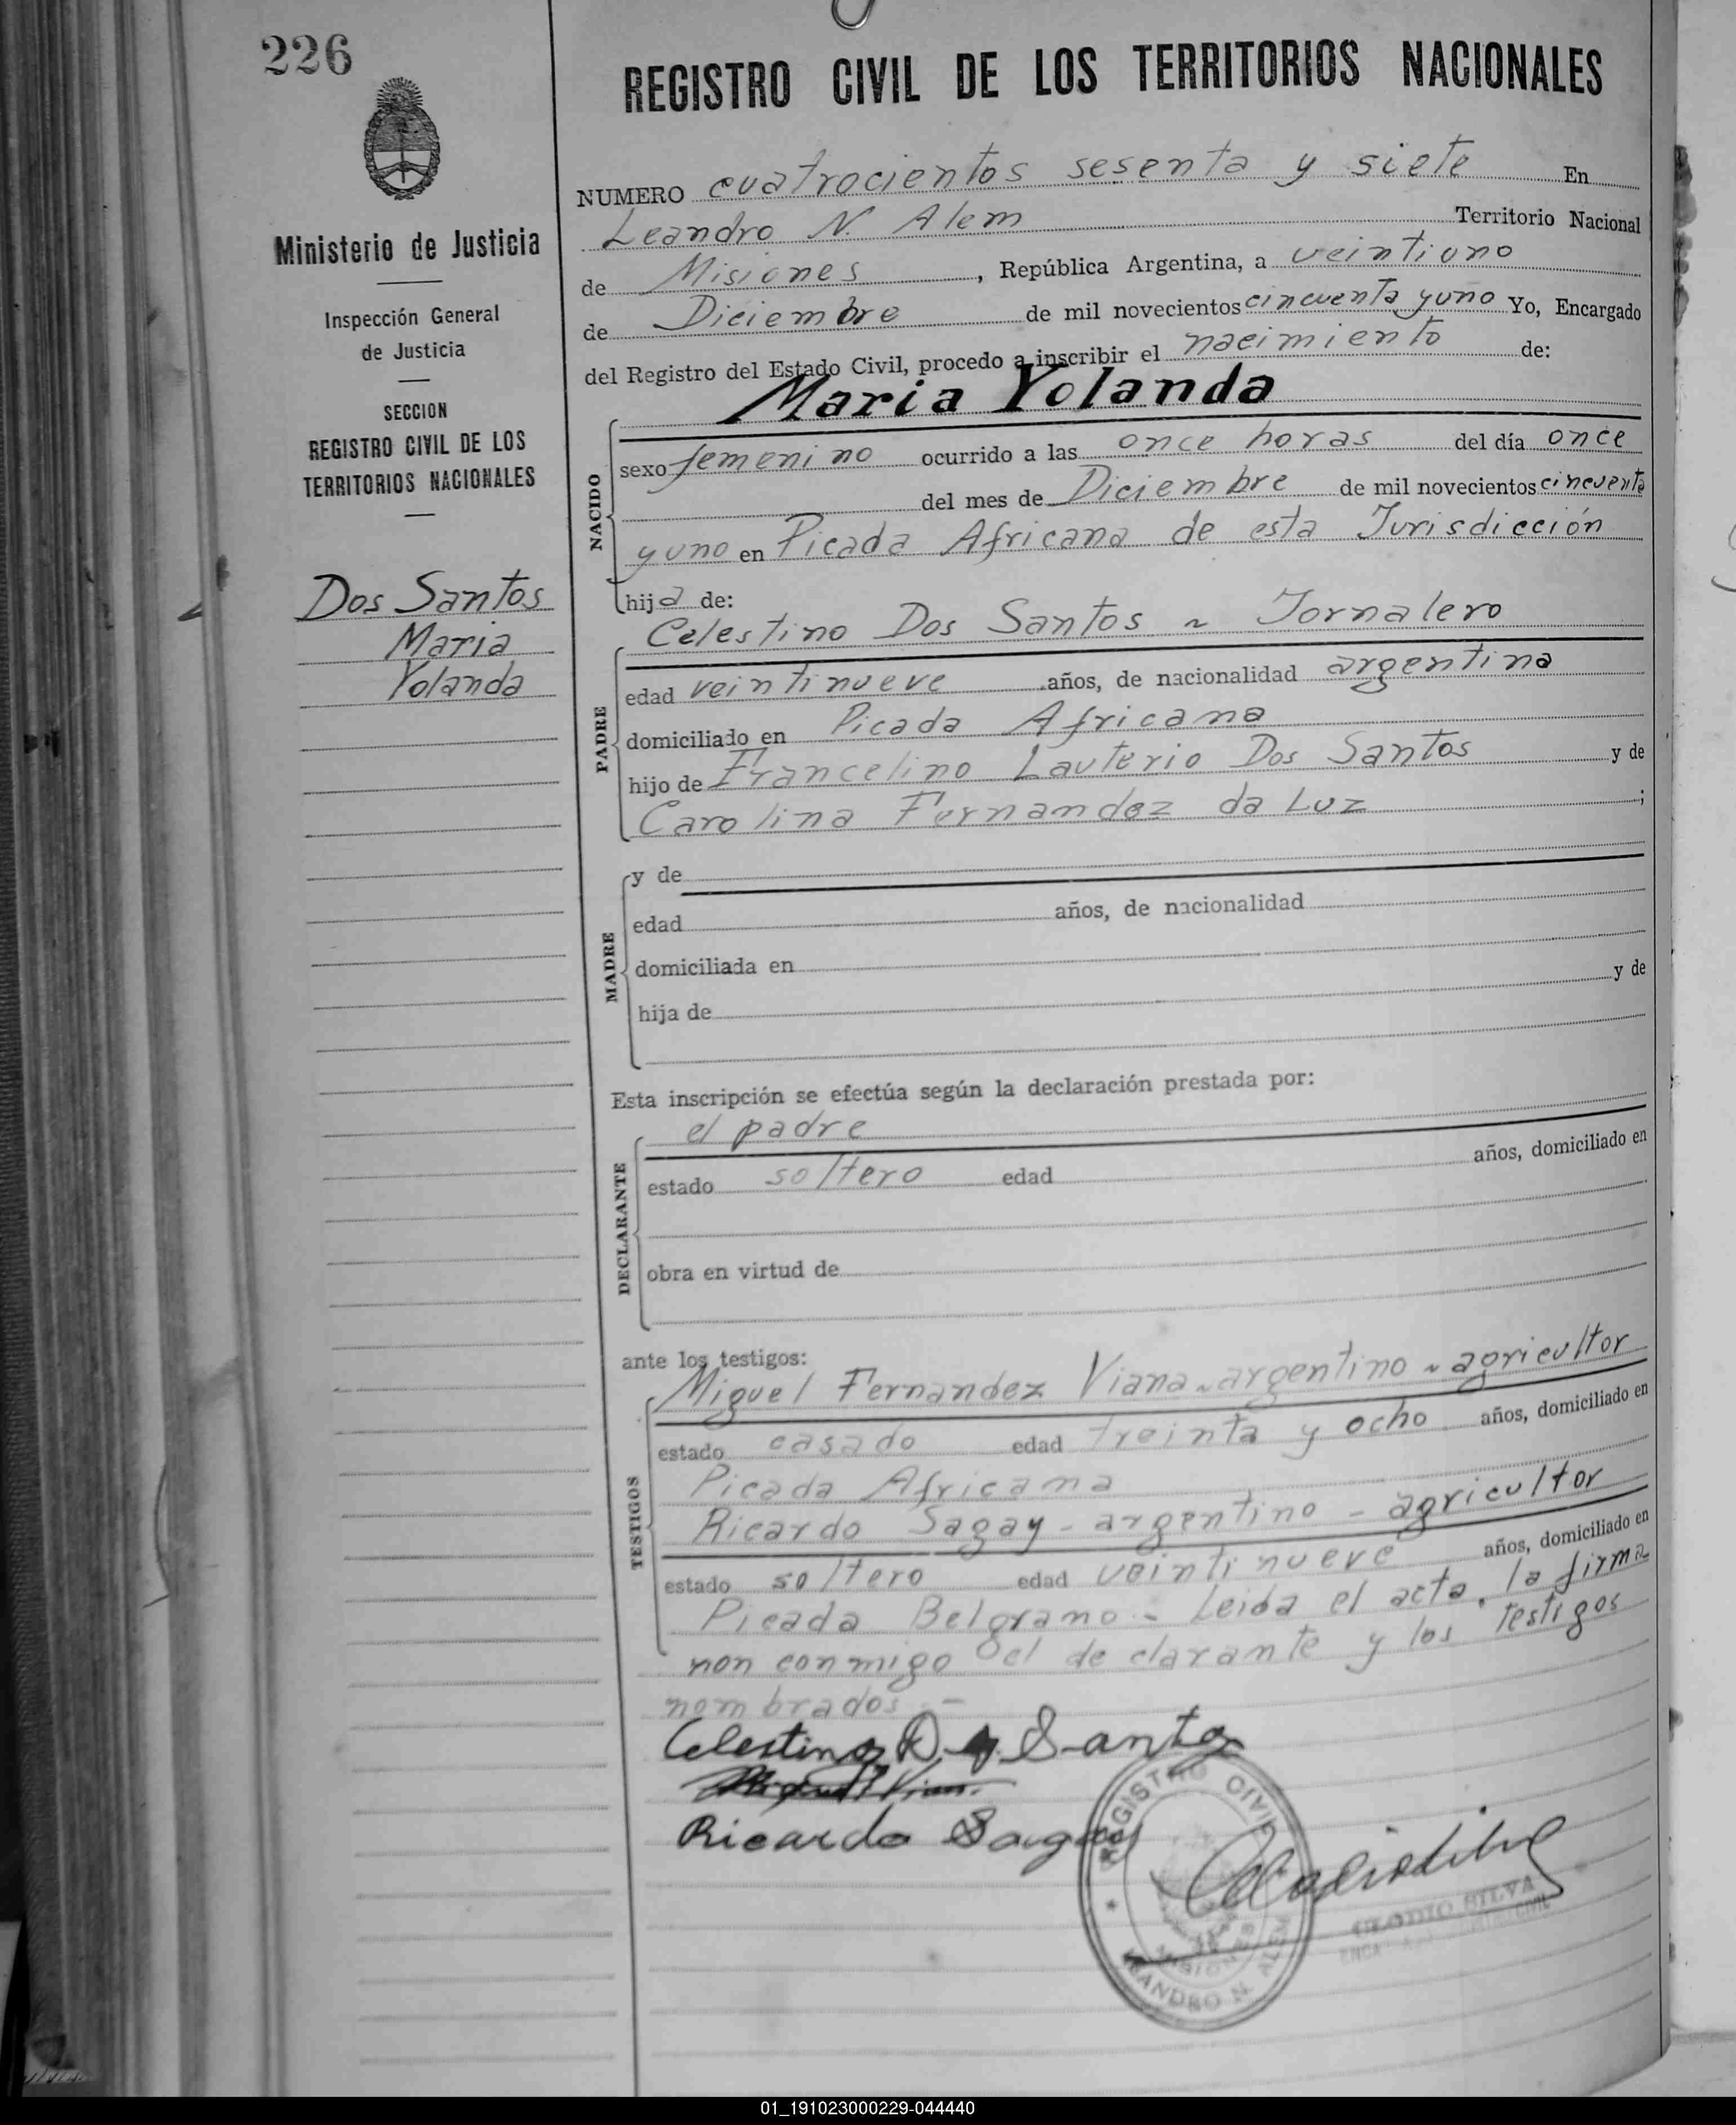 226
Ministerio de Justicia
Inspección General
de Justicia
SECCION
REGISTRO CIVIL DE LOS
TERRITORIOS NACIONALES
Dos Santos
Maria
Yolanda
REGISTRO CIVIL DE LOS TERRITORIOS NACIONALES
NUMERO cuatrocientos sesenta y siete En
Leandro N. Alem Territorio Nacional
de Misiones, República Argentina, a veintiuno
de Diciembre de mil novecientos cincuenta y uno Yo, Encargado
del Registro del Estado Civil, procedo a inscribir el nacimiento de:
Maria Yolanda
NACIDO
sexo femenino ocurrido a las once horas del día once
del mes de Diciembre de mil novecientos cincuenta
y uno en Picada Africana de esta Jurisdicción
hija de:
Celestino Dos Santos ~ Jornalero
PADRE
edad veintinueve años, de nacionalidad argentina
domiciliado en Picada Africana
hijo de Francelino Lauterio Dos Santos y de
Carolina Fernandez da Luz ;
MADRE
y de
edad años, de nacionalidad
domiciliada en
hija de y de
Esta inscripción se efectúa según la declaración prestada por:
el padre
DECLARANTE
estado soltero edad años, domiciliado en
obra en virtud de
ante los testigos:
Miguel Fernandez Viana ~ argentino ~ agricultor
TESTIGOS
estado casado edad treinta y ocho años, domiciliado en
Picada Africana
Ricardo Sagay - argentino - agricultor
estado soltero edad veintinueve años, domiciliado en
Picada Belgrano - Leida el acta, la firma
non conmigo el declarante y los testigos
nombrados. -
Celestino D. Santos
Ricardo Sagay
REGISTRO CIVIL
MISIONES
LEANDRO N. ALEM
SILVA
01_191023000229-044440